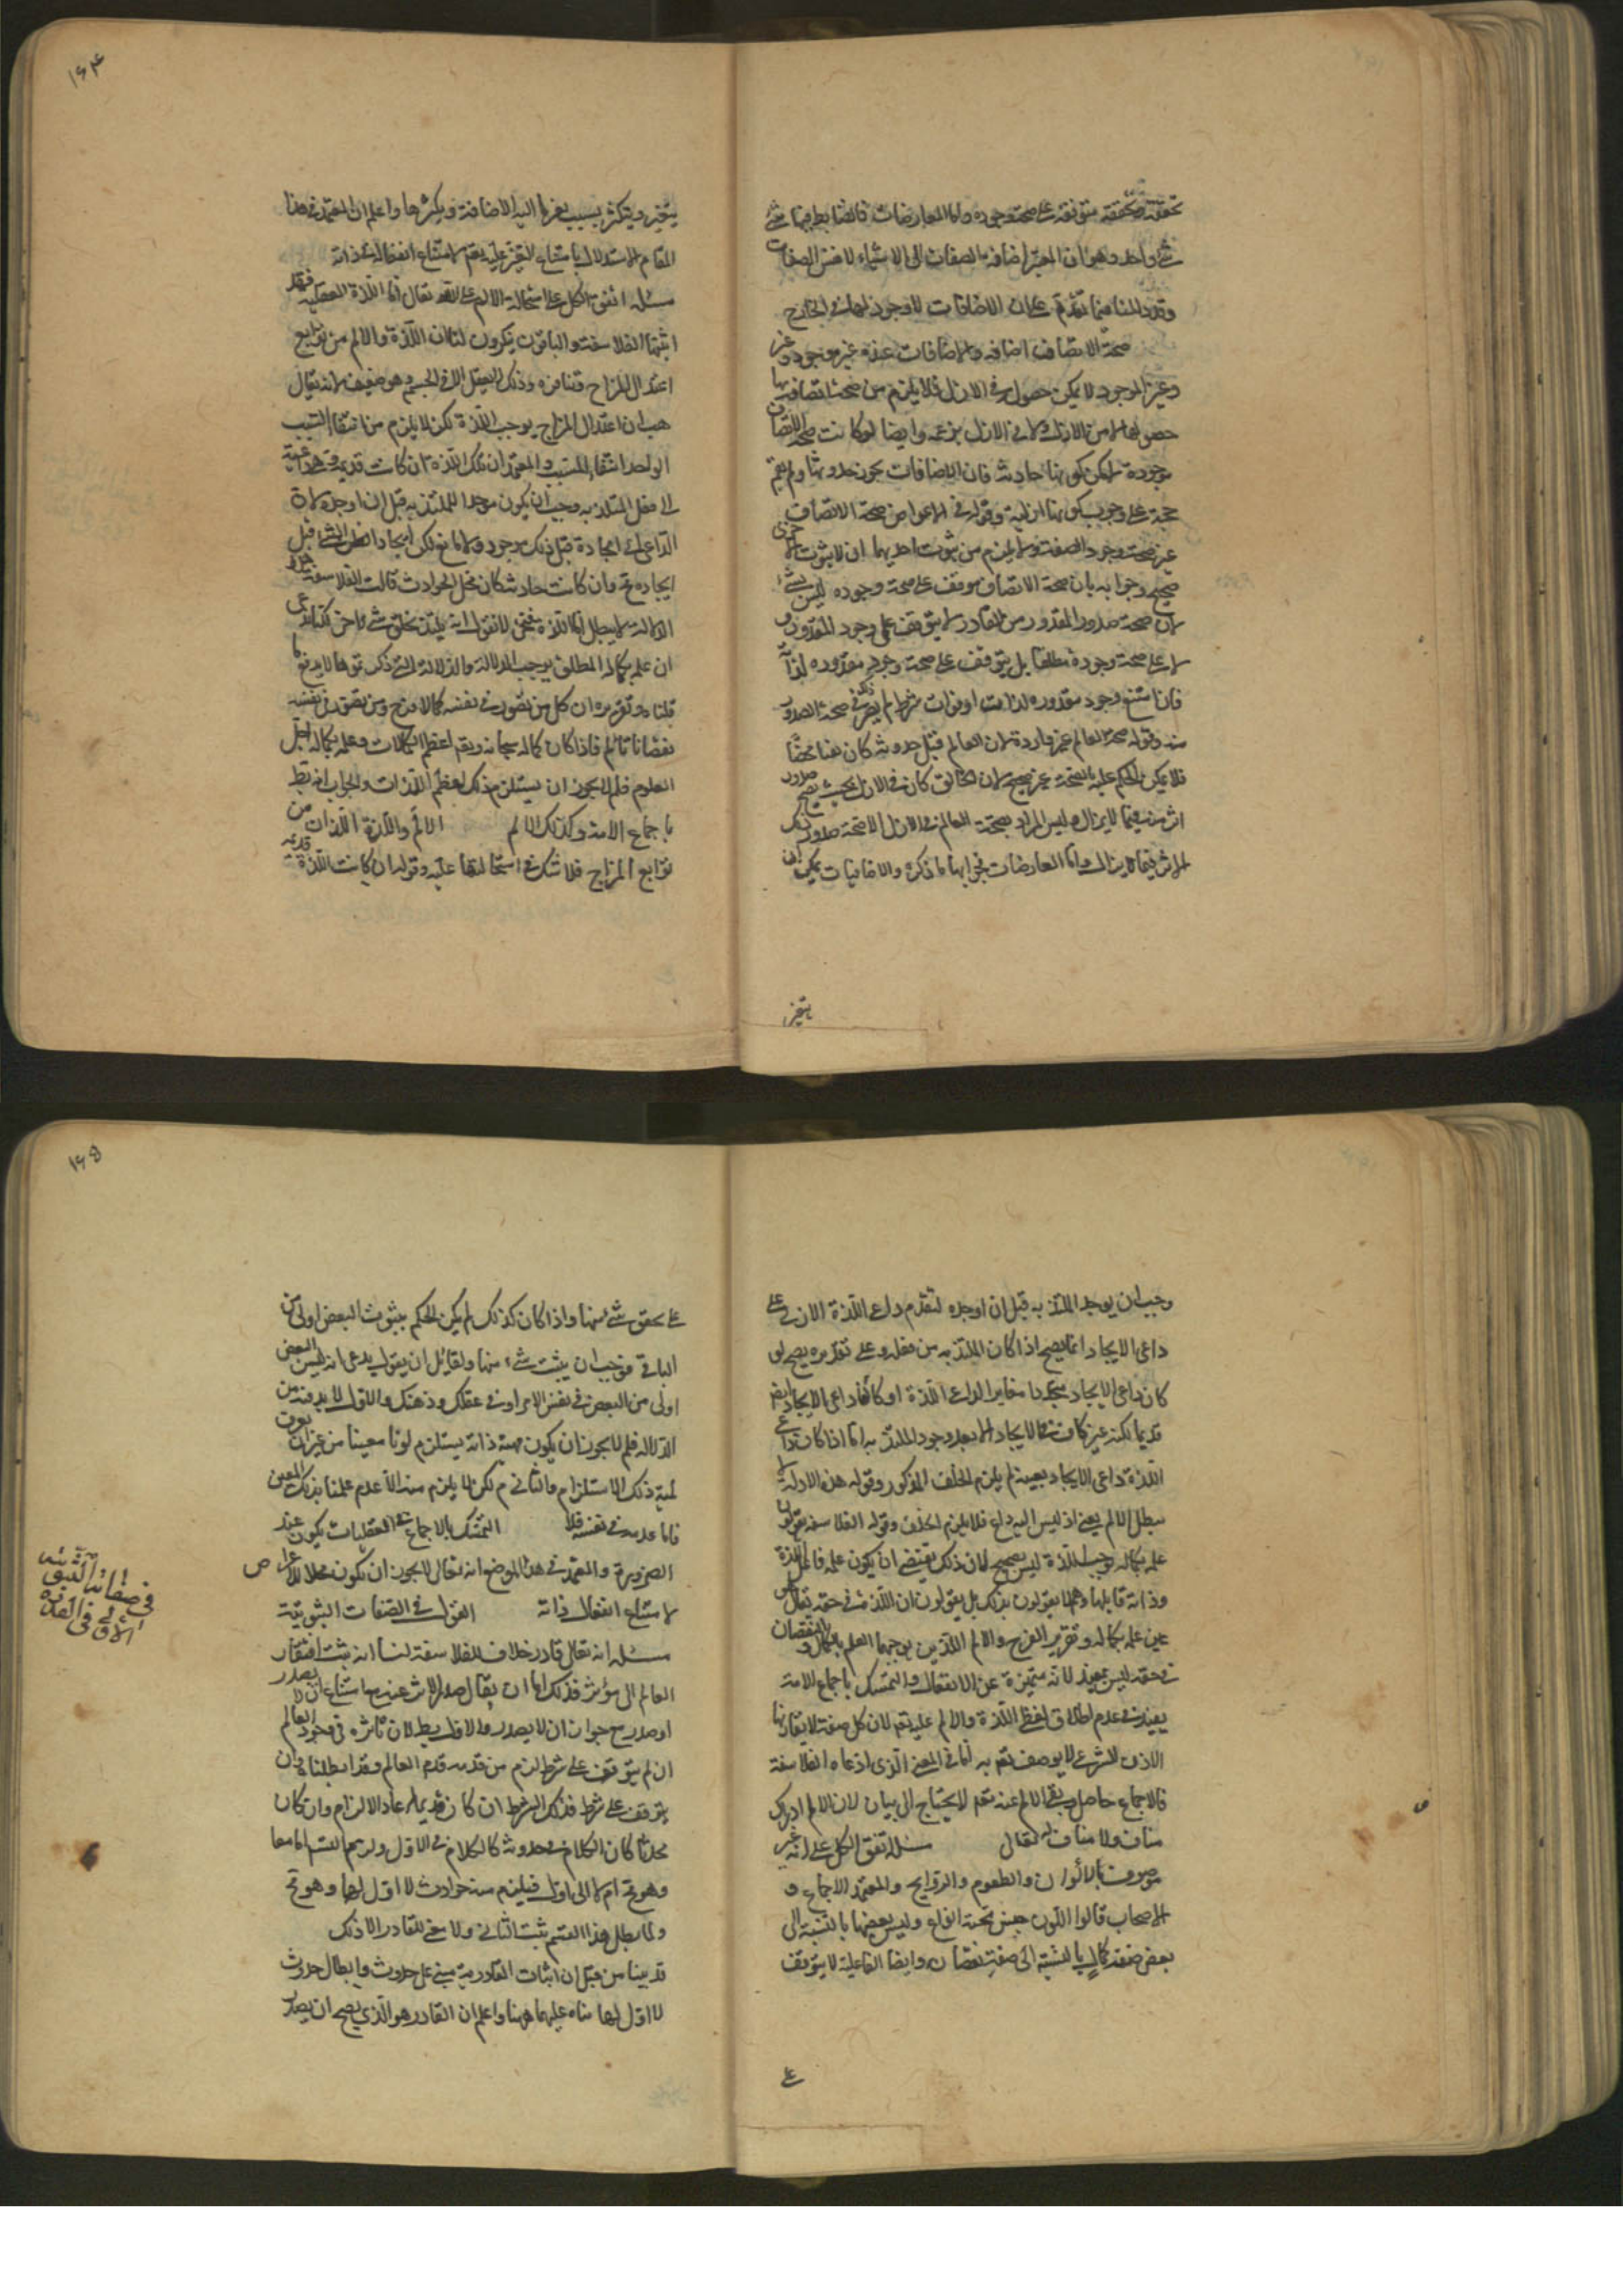 تحققه متوقفة على صحة وجوده واما المعارضات فالضابط فيها شئ
شئ واحد وهو ان المتغير اضافة الصفات الى الاشياء لا نفس الصفات
وقد دللنا فيما تقدم على ان الاضافات لا وجود لها في الخارج
صحة الاتصاف اضافة والاضافات عنده غير موجودة
وغير الموجود لا يمكن حصوله في الازل فلا يلزم من صحة اتصافه بها
حصولها من الازل ولا في الازل بزعمه وايضا لو كانت صحة الاتصاف
موجودة لامكن كونها حادثة فان الاضافات يجوز حدوثها ولم يقم
حجة على وجوب كونها ازلية وقوله في الاعتراض صحة الاتصاف
غير صحة وجود الصفة ولا يلزم من ثبوت احديهما ان لا يثبت الاخرى
صحيح وجوابه بان صحة الاتصاف موقف على صحة وجوده ليس بشئ
لان صحة صدور المقدور من القادر لا يتوقف على وجود المقدور و
لا على صحة وجوده مطلقا بل يتوقف على صحة وجود مقدوره لذاته
فاذا امتنع وجود مقدوره لذاته او فوات شرط لم يضر ذلك في صحة الصدور
منه وقوله صحة العالم غير واردة لان العالم قبل حدوثه كان نفيا محضا
فلا يمكن الحكم عليه بالصحة غير صحيح لان الخالق كان في الازل بحيث يصح صدور
اثر منه فيما لا يزال وليس المراد بصحة العالم في الازل الا صحة صدور ذلك
الاثر فيما لا يزال واما المعارضات فجوابها ما ذكره والاضافيات يمكن ان
يتغير
١٦٤
يتغير ويتكثر بسبب تغير ما اليه الاضافة وتكثرها واعلم ان المعتمد في هذا
المقام الاستدلال بامتناع التغير عليه تعالى لامتناع انفعاله في ذاته
مسئلة اتفق الكل على استحالة الالم على الله تعالى اما اللذة العقلية فقد
اثبتها الفلاسفة والباقون ينكرون لنا ان اللذة والالم من توابع
اعتدال المزاج وتنافره وذلك لا يعقل الا في الجسم وهو ضعيف لانه يقال
هب ان اعتدال المزاج يوجب اللذة لكن لا يلزم من انتفاء السبب
الواحد انتفاء المسبب والمعتمد ان تلك اللذة ان كانت قديمة وهي داعية
الى فعل الملتذ به وجب ان يكون موجدا للملتذ به قبل ان اوجده لان
الداعي الى ايجاده قبل ذلك موجود ولا مانع لكن ايجاد الشئ قبل
ايجاده محال وان كانت حادثة كان محل الحوادث قالت الفلاسفة هذه
الدلالة لا يبطل اللذة فنحن لا نقول انه يلتذ بخلق شئ اخر لكنا ندعي
ان علمه بكماله المطلق يوجب اللذة والدلالة التي ذكرتموها لا يدفع ما
قلناه وتقريره ان كل من تصور في نفسه كمالا فرح ومن تصور في نفسه
نقصانا تألم فاذا كان كماله سبحانه وتعالى اعظم الكمالات وعلمه بكماله اجل
العلوم فلم لا يجوز ان يستلزم ذلك اعظم اللذات والجواب انه بط
باجماع الامة وكذلك الالم   الالم واللذة اللذان من
توابع المزاج فلا شك في استحالتها عليه وقوله ان كانت اللذة قديمة
وجب ان يوجد الملتذ به قبل ان اوجده لتقدم داعي اللذة الازلي على
داعي الايجاد انما يصح اذا كان الملتذ به من فعله وعلى تقديره يصح لو
كان داعي الايجاد متجددا مغايرا لداعي اللذة او كان داعي الايجاد ايضا
قديما لكنه غير كاف في الايجاد الا بعد وجود الملتذ به اما اذا كان داعي
اللذة داعي الايجاد بعينه لم يلزم الخلف المذكور وقوله هذه الادلة لا
يبطل الالم يعني اذ ليس اليه داع فلا يلزم الخلف وقول الفلاسفة يقولون
علمه بكماله يوجب اللذة ليس بصحيح لان ذلك يقتضي ان يكون علمه فاعل اللذة
وذاته قابلها وهم لا يقولون بذلك بل يقولون ان اللذة في حقه تعالى
عين علمه بكماله وتقرير الفرح والالم اللذين يوجبهما العلم بالكمال والنقصان
في حقه ليس بمفيد لانه منزه عن الانفعال والتمسك باجماع الامة
يفيد في عدم اطلاق لفظ اللذة والالم عليه تعالى لان كل صفة لا يقارنها
الاذن الشرعي لا يوصف تعالى به اما في المعنى الذي ادعاه الفلاسفة
فالاجماع حاصل ونفي الالم عنه تعالى لا يحتاج الى بيان لان الالم ادراك
مناف ولا منافي له تعالى   مسئلة اتفق الكل على انه غير
موصوف بالالوان والطعوم والروايح والمعتمد الاجماع و
الاصحاب قالوا اللون جنس تحته انواع وليس بعضها بالنسبة الى
بعض صفة كمال او بالنسبة الى صفة نقصان وايضا الفاعلية لا يتوقف
على
١٦٥
على تحقق شئ منها واذا كان كذلك لم يكن الحكم بثبوت البعض اولى من
الباقي فوجب ان لا يثبت شئ منها ولقائل ان يقول يدعى انه ليس البعض
اولى من البعض في نفس الامر او في عقلك وذهنك والاول لا بد فيه من
الدلالة فلم لا يجوز ان يكون مهية ذاته يستلزم لونا معينا من غير ان يعرف
لمية ذلك الاستلزام والثاني م لكن لا يلزم منه الا عدم علمنا بذلك المعين
فاما عدمه في نفسه فلا   التمسك بالاجماع في العقليات يكون عند
الضرورة والمعتمد في هذا الموضع انه تعالى لا يجوز ان يكون محلا للاعراض
لامتناع انفعال ذاته   القول في الصفات الثبوتية
مسئلة انه تعالى قادر خلافا للفلاسفة لنا انه ثبت افتقار
العالم الى مؤثر فذلك اما ان يقال صدر الاثر عنه مع امتناع ان لا يصدر
او صدر مع جواز ان لا يصدر والاول بط لان تاثيره في وجود العالم
ان لم يتوقف على شرط لزم من قدمه قدم العالم وقد ابطلناه وان
يتوقف على شرط فذلك الشرط ان كان قديما عاد الالزام وان كان
محدثا كان الكلام في حدوثه كالكلام في الاول ولزم التسلسل اما معا
وهو محال او لا الى اول فيلزم منه حوادث لا اول لها وهو محال
ولما بطل هذا القسم ثبت الثاني ولا معنى للقادر الا ذلك
قد بينا من قبل ان اثبات القادرية مبني على حدوث وابطال حوادث
لا اول لها بناه عليهما ههنا واعلم ان القادر هو الذي يصح ان يصدر
في صفاته الثبوتية
الاولى في القدرة